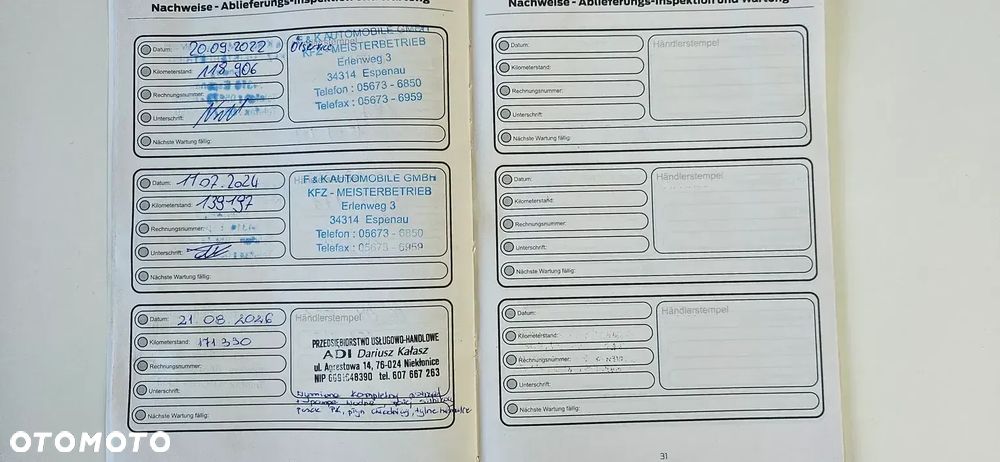 Nachweise - Ablieferungs-Inspektion und Wartung
Datum: 20.09.2022
Kilometerstand: 118 906
Rechnungsnummer:
Unterschrift:
Nächste Wartung fällig:
Ölservice
F & K AUTOMOBILE GMBH
KFZ - MEISTERBETRIEB
Erlenweg 3
34314 Espenau
Telefon : 05673 - 6850
Telefax : 05673 - 6959
Datum: 11.07.2024
Kilometerstand: 139197
Rechnungsnummer:
Unterschrift:
Nächste Wartung fällig:
F & K AUTOMOBILE GMBH
KFZ - MEISTERBETRIEB
Erlenweg 3
34314 Espenau
Telefon : 05673 - 6850
Telefax : 05673 - 6959
Datum: 21.08.2026
Kilometerstand: 171 330
Rechnungsnummer:
Unterschrift:
Nächste Wartung fällig:
Händlerstempel
PRZEDSIĘBIORSTWO USŁUGOWO-HANDLOWE
ADI Dariusz Kałasz
ul. Agrestowa 14, 76-024 Niekłonice
NIP 6691048390 tel. 607 667 263
wymiana kompletny rozrząd
+ pompa wodna, olej, filtry
pasek PK, płyn chłodniczy, tylne hamulce
Nachweise - Ablieferungs-Inspektion und Wartung
Datum:
Kilometerstand:
Rechnungsnummer:
Unterschrift:
Nächste Wartung fällig:
Händlerstempel
Datum:
Kilometerstand:
Rechnungsnummer:
Unterschrift:
Nächste Wartung fällig:
Händlerstempel
Datum:
Kilometerstand:
Rechnungsnummer:
Unterschrift:
Nächste Wartung fällig:
Händlerstempel
31
OTOMOTO